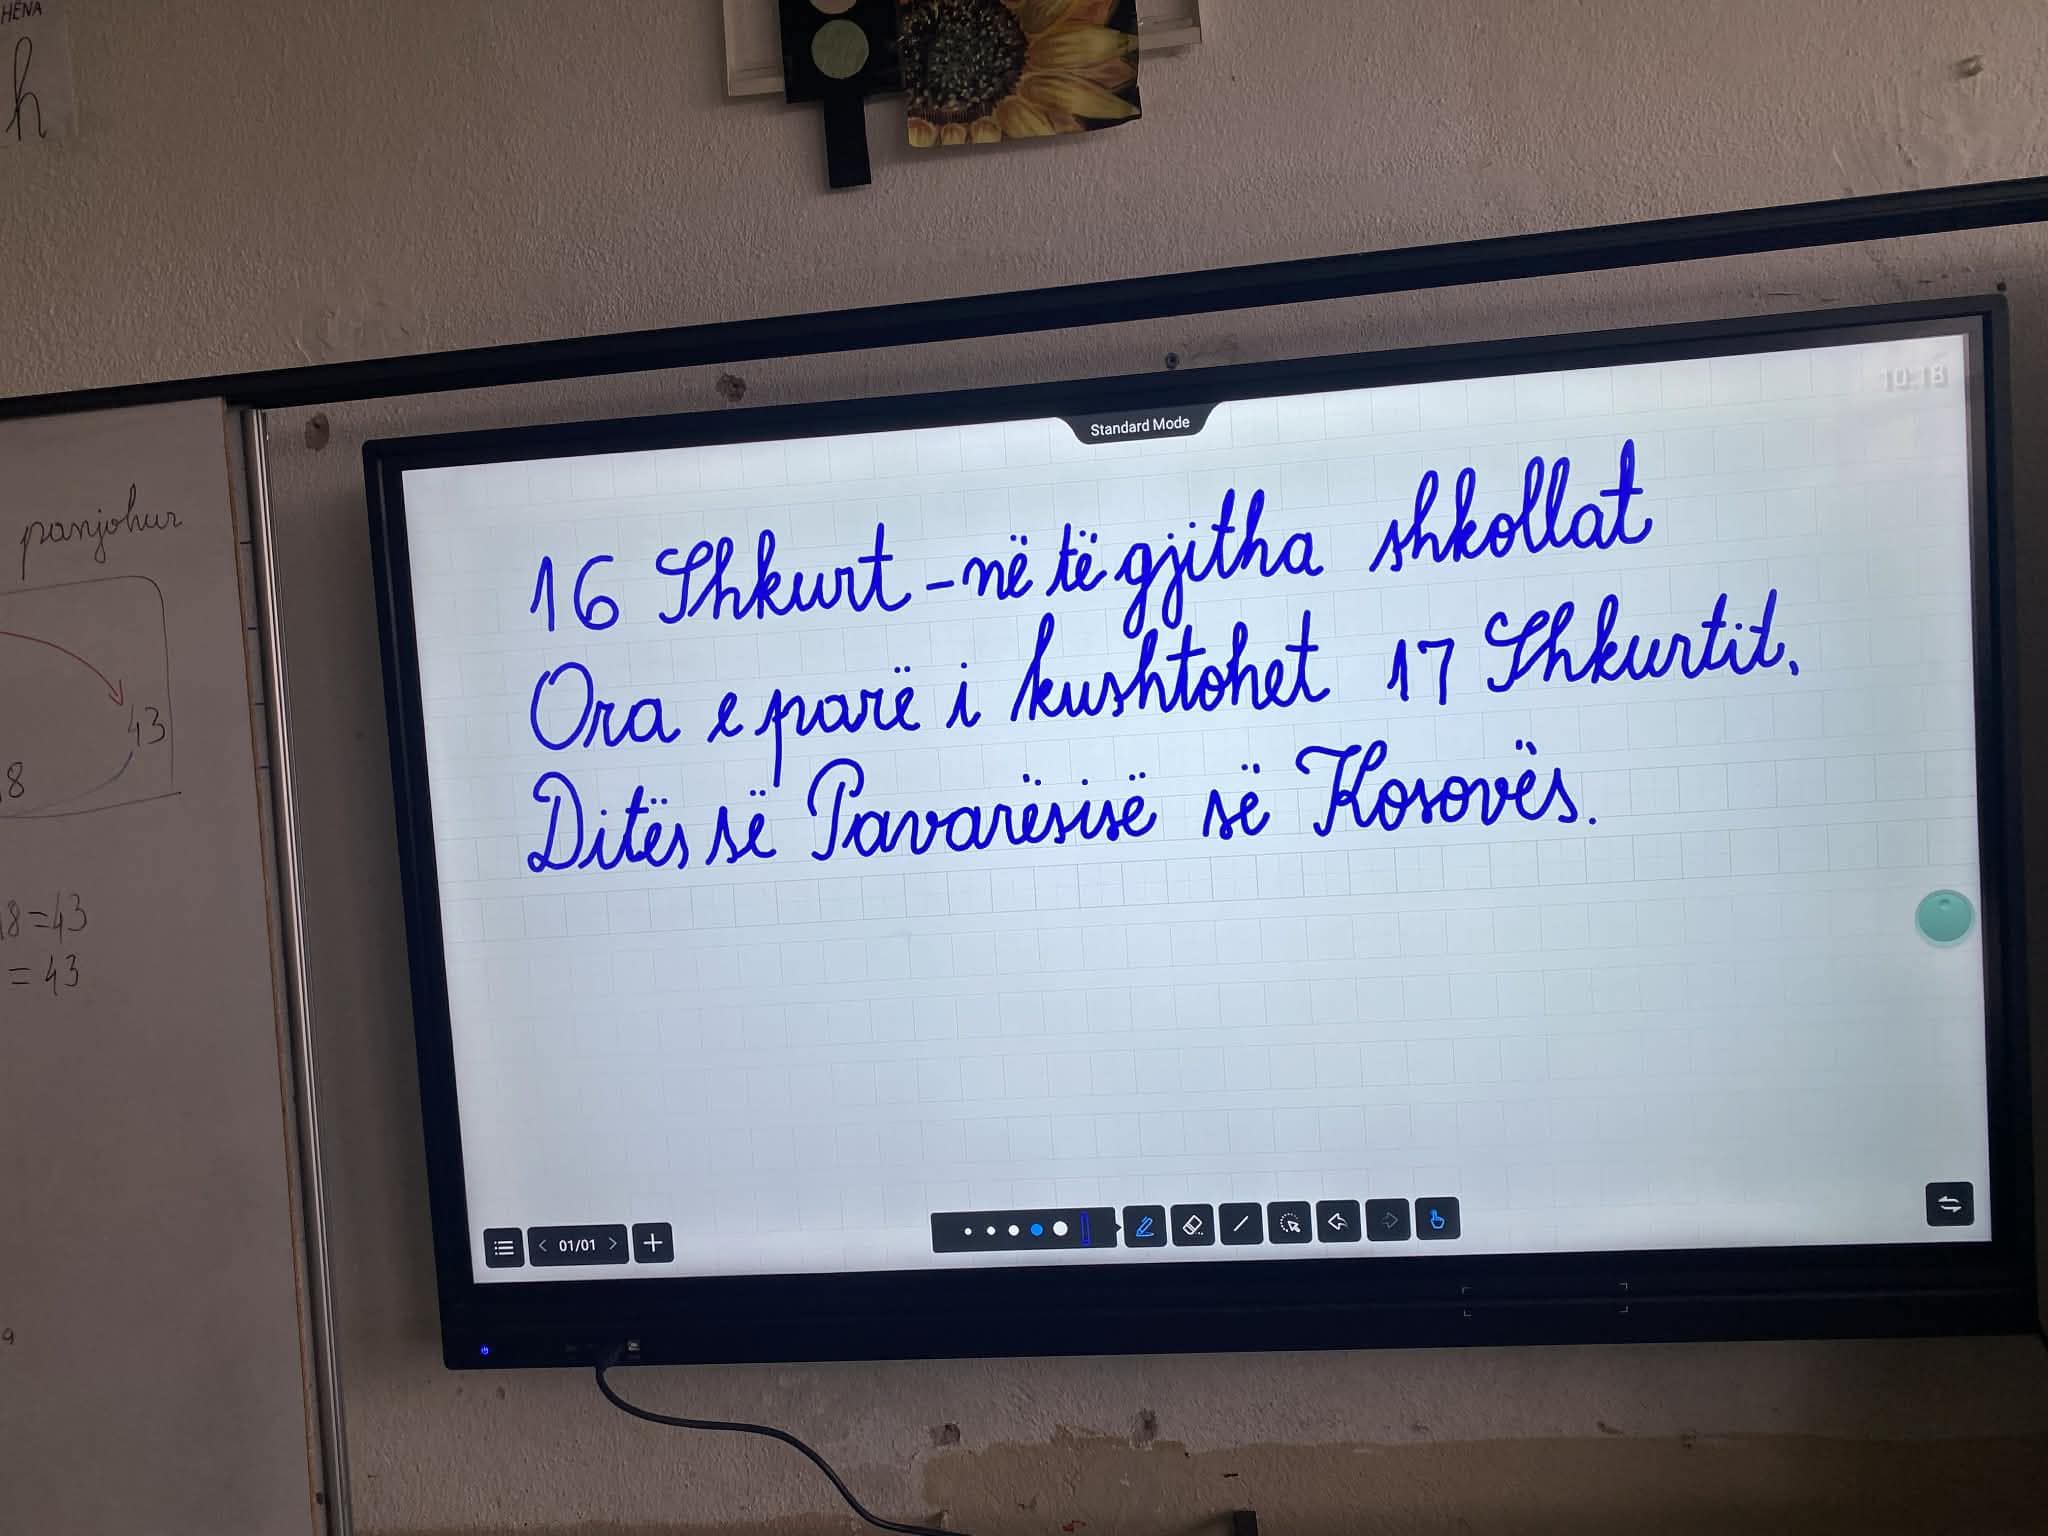 HËNA
h
Standard Mode
10:18
16 Shkurt - në të gjitha shkollat
Ora e parë i kushtohet 17 Shkurtit,
Ditës së Pavarësisë së Kosovës.
panjohur
43
8
18=43
= 43
01/01